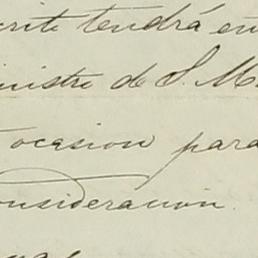 crite tendrá en
inistro de S. M.
ocasion para
onsideracion.